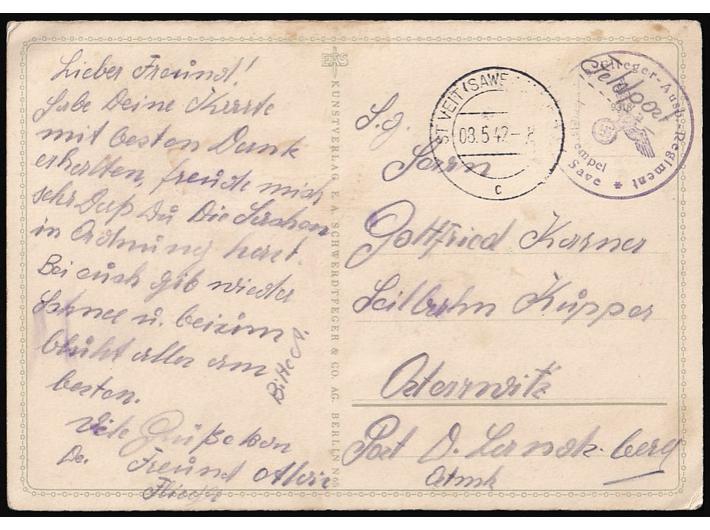 Lieber Freund!
Habe Deine Karte
mit besten Dank
erhalten, freude mich
sehr Daß Du Die Sachen
in Ordnung hast.
Bei euch gib wieder
Schnee u. bei uns
blüht alles am
besten.
Viele Grüße von
De. Freund Alois
Flieger
KUNSTVERLAG E. A. SCHWERDTFEGER & CO. AG. BERLIN N
ST VEIT (SAWE
03.5.42-8
c
Feldpost
Flieger-Ausb.-Regiment
Save
S.g.
Herrn
Gottfried Kerner
Seilbahn Küpper
Post D. Landsberg